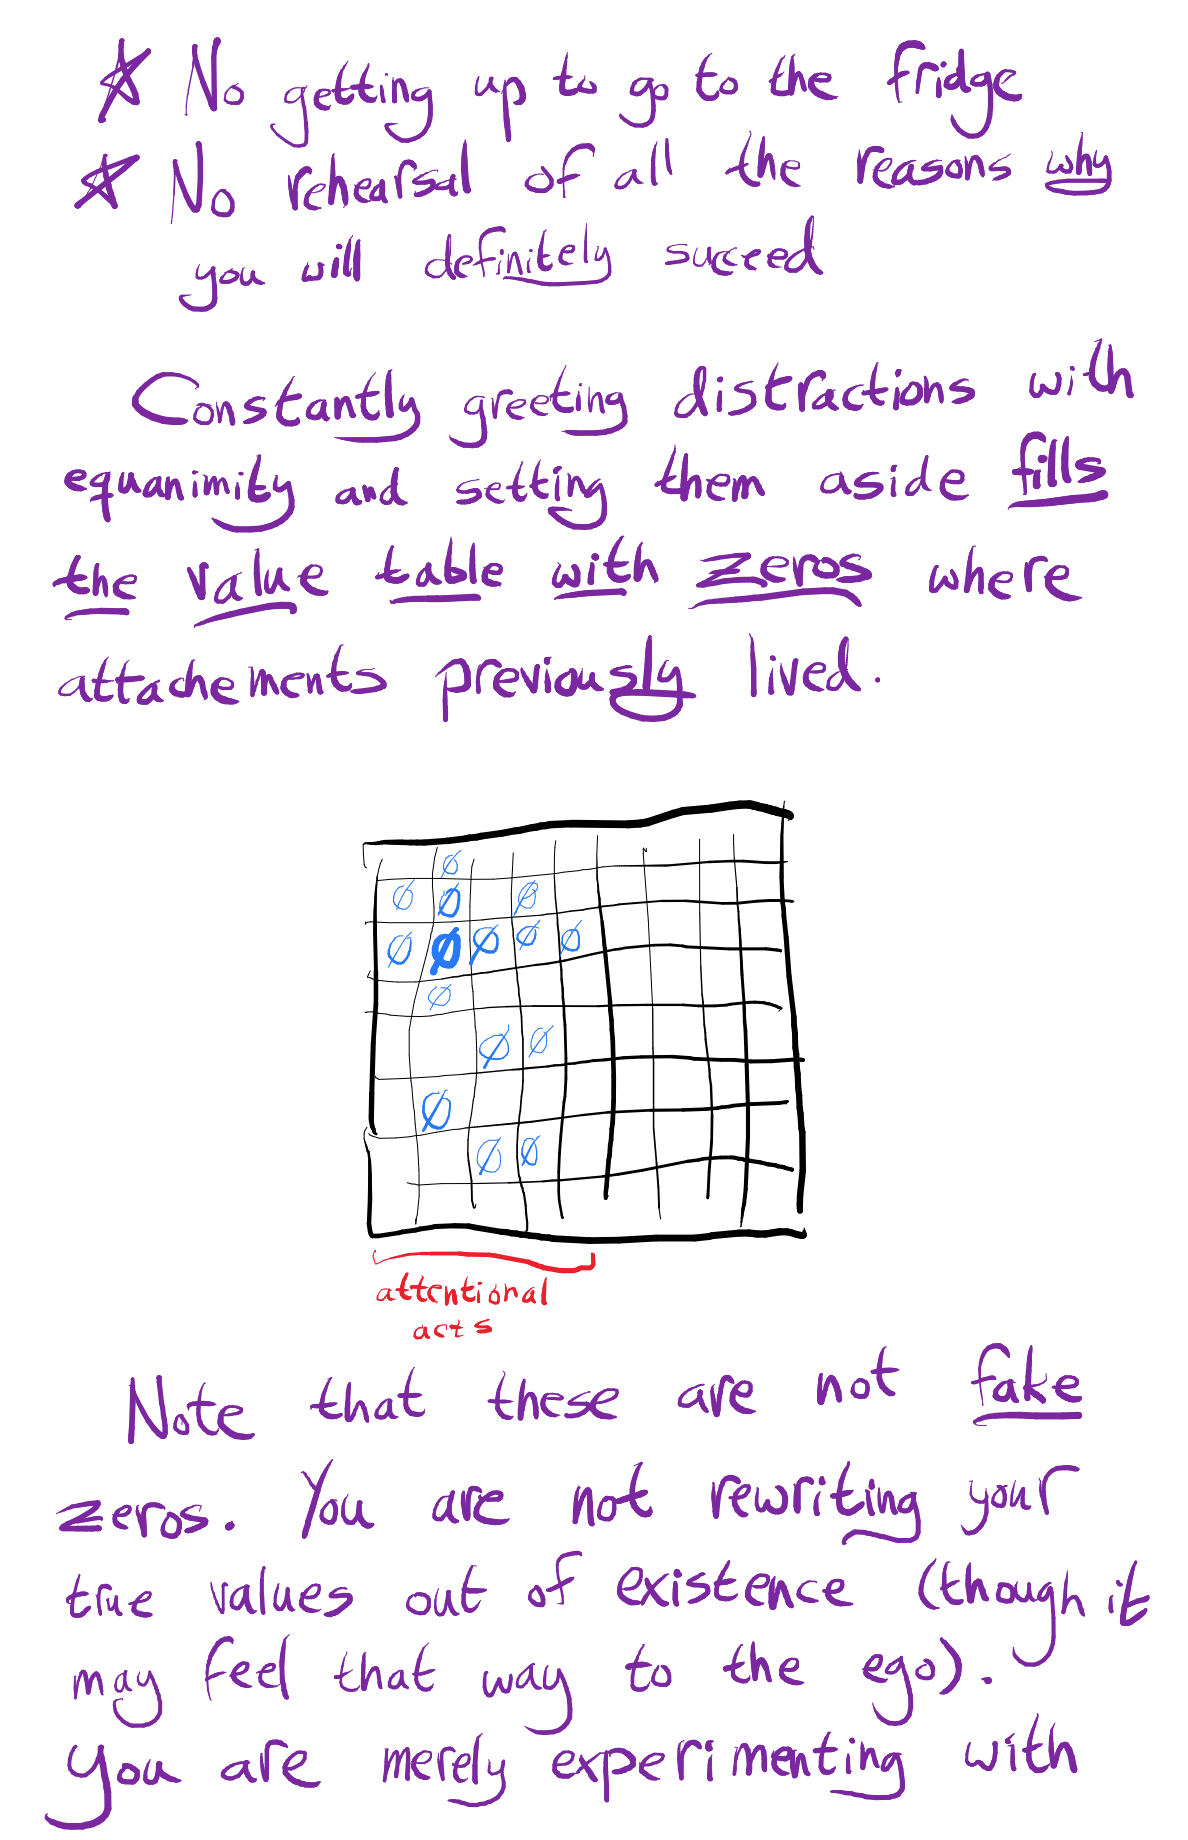 ☆ No getting up to go to the fridge
☆ No rehearsal of all the reasons why
you will definitely succeed
Constantly greeting distractions with
equanimity and setting them aside fills
the value table with zeros where
attachements previously lived.
Ø
Ø Ø Ø
Ø Ø Ø Ø Ø
Ø
Ø Ø
Ø
Ø Ø
attentional
acts
Note that these are not fake
zeros. You are not rewriting your
true values out of existence (though it
may feel that way to the ego).
You are merely experimenting with